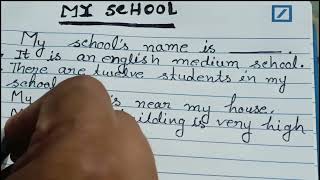 MY SCHOOL
My school's name is ______.
It is an english medium school.
There are twelve students in my
school
My is near my house.
building is very high